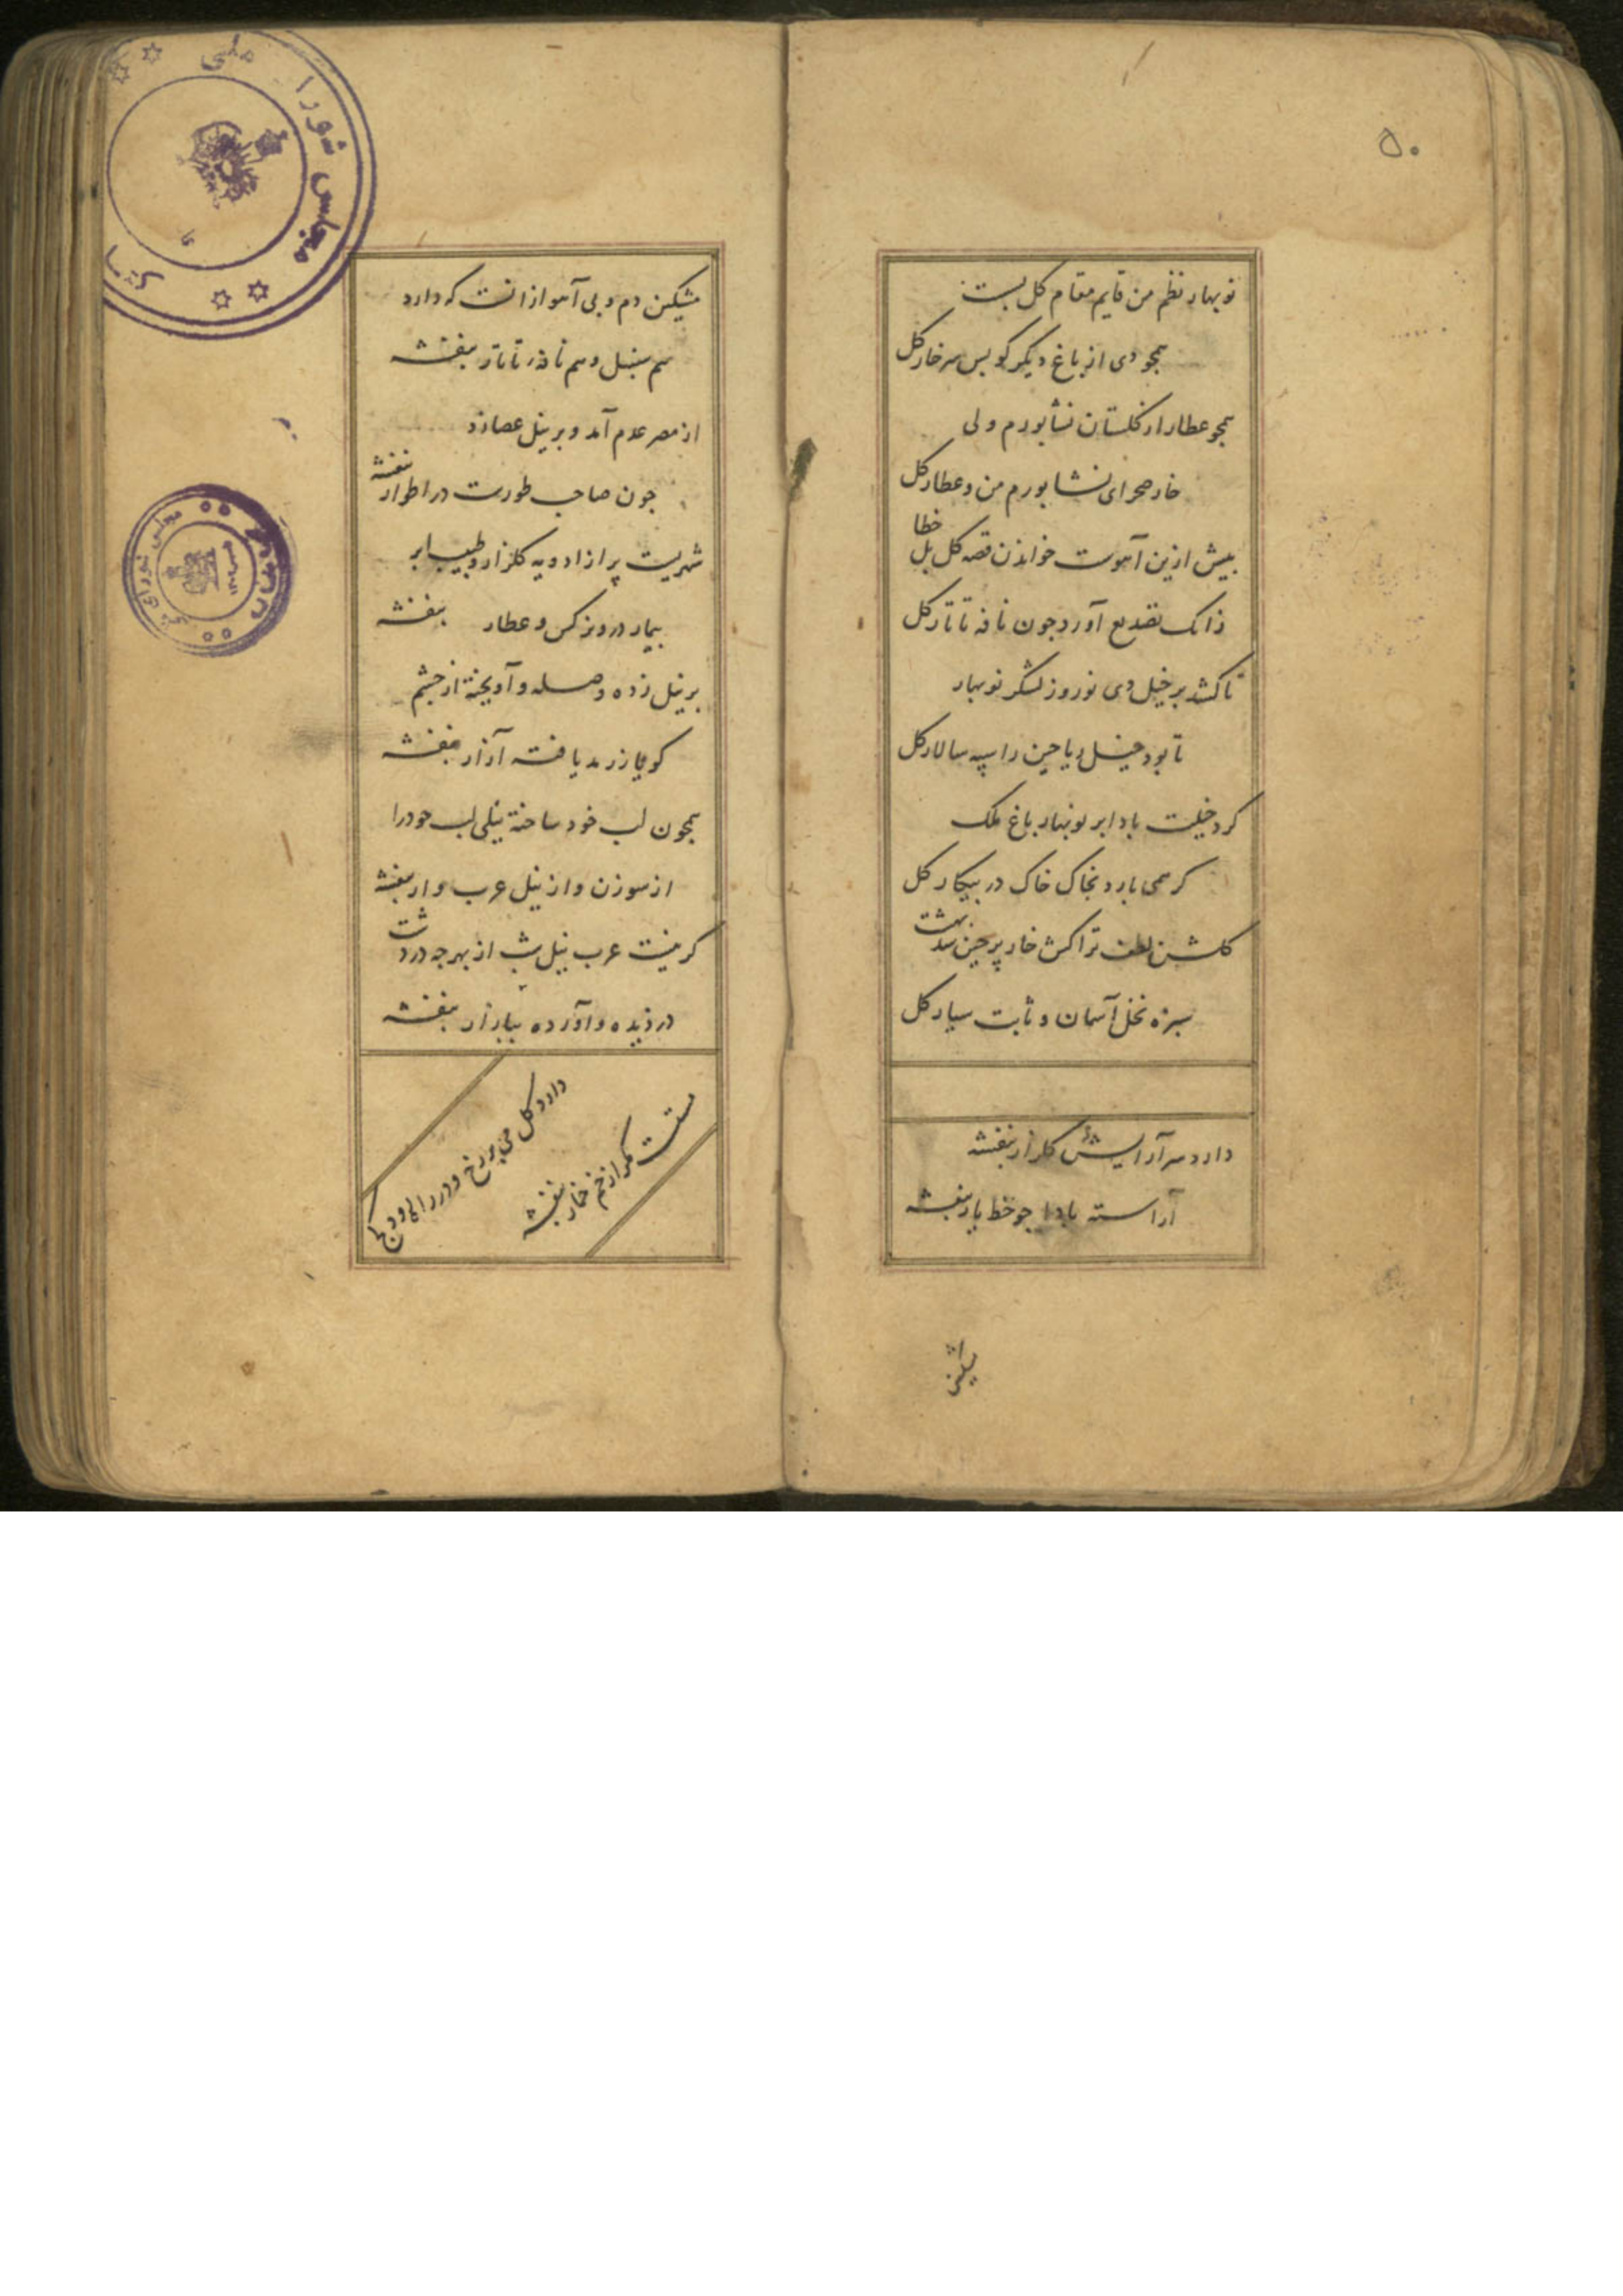 ۵۰
نوبهار نظم من قایم مقام کل بست
همجو دی از باغ دیگر کو بس سر خار کل
همجو عطار از کلستان نشابورم ولی
خار صحرای نشابورم من و عطار کل
بیش ازین آهوست خواندن قصه کل بل خطا
زانک تصدیع آورد جون نافه تاتار کل
تا کشد بر خیل دی نوروز لشکر نوبهار
تا بود خیل ریاحین را سپه سالار کل
کرد خیلت باد ابر نوبهار باغ ملک
کر همی بارد بخاک خاک در بیکار کل
کلشن لطف ترا کش خار پرچین شد بهشت
سبزه نخل آسمان و ثابت سیار کل
دارد سر آرایش کلزار بنفشه
آراسته بادا جو خط یار بنفشه
مشکین
مشکین دم و بی آهو ازانست که دارد
هم سنبل و هم نافه تاتار بنفشه
از مصر عدم آمد و بر نیل عصا زد
جون صاحب طورست در اطوار بنفشه
شهریست پر از ادویه کلزار و طبیب ابر
بیمار درو نرکس و عطار بنفشه
بر نیل زده وصله و آویخته از جشم
کویا ز رمد یافته آزار بنفشه
همجون لب خود ساخته نیلی لب جو را
از سوزن و از نیل عرب وار بنفشه
کر نیست عرب نیل شب از بهر جه در دشت
دزدیده و آورده ببازار بنفشه
دارد کل می بر رخ و در
مست مکر از خم خمار بنفشه
مجلس شورای ملی